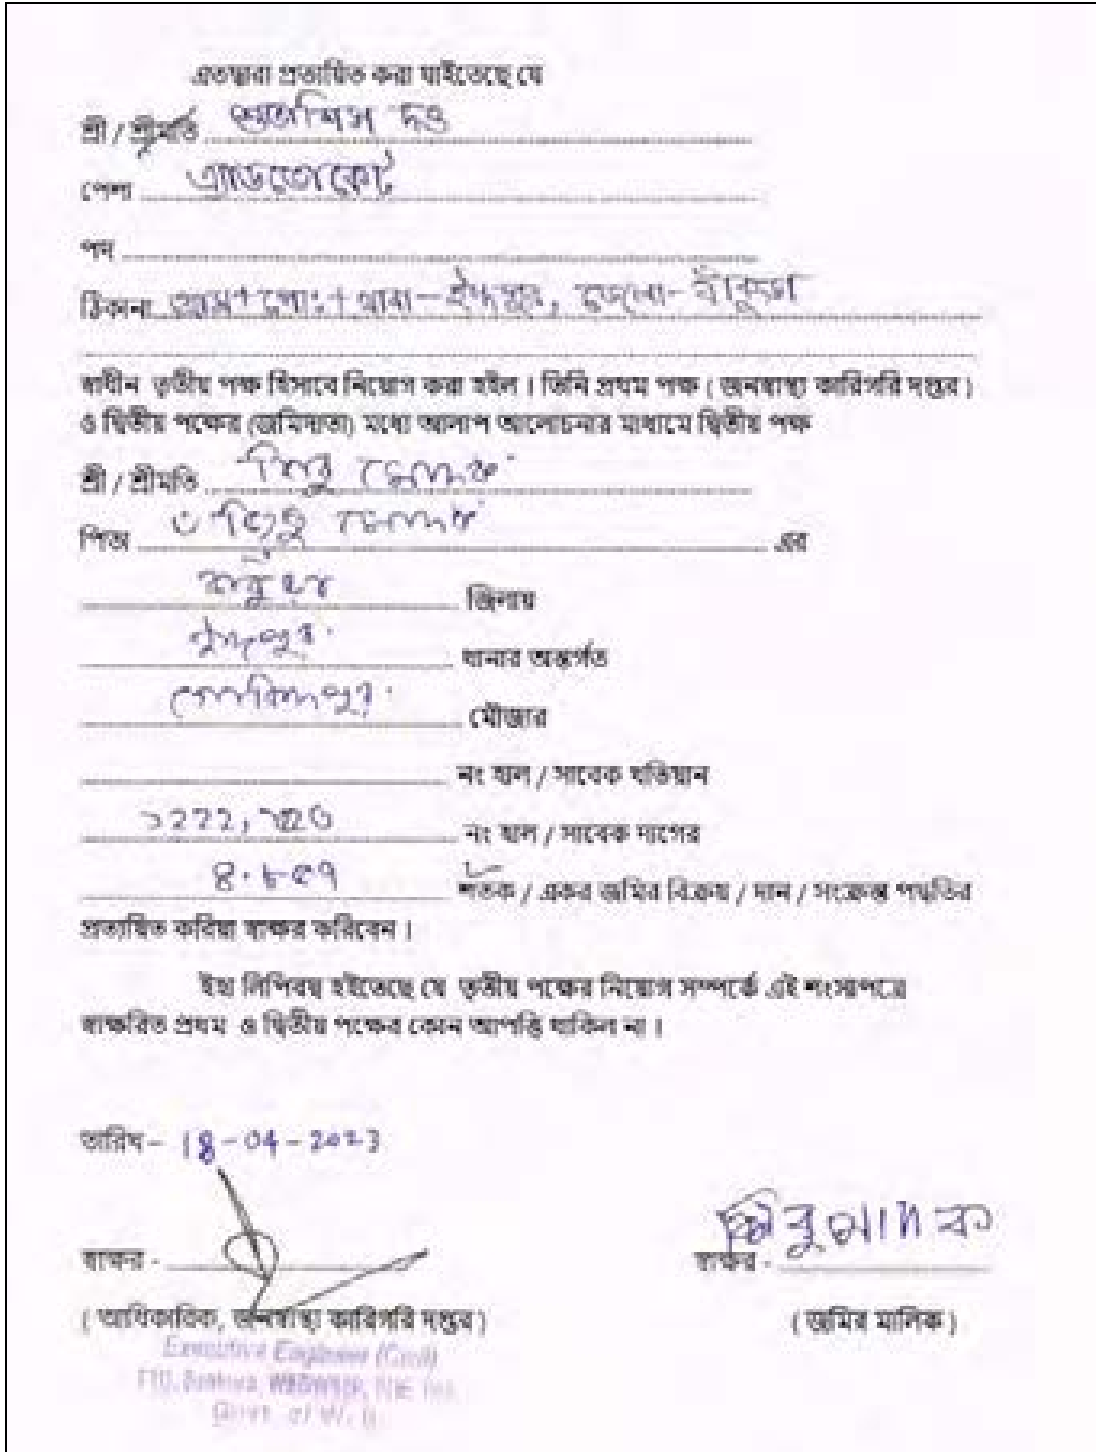 এতদ্বারা প্রত্যয়িত করা যাইতেছে যে
শ্রী / শ্রীমতি শুভাশিস দত্ত
পেশা এ্যাডভোকেট
পদ
ঠিকানা গ্রাম+পোঃ+থানা-ইন্দপুর, জেলা-বাঁকুড়া
স্বাধীন তৃতীয় পক্ষ হিসাবে নিয়োগ করা হইল । তিনি প্রথম পক্ষ ( জনস্বাস্থ্য কারিগরি দপ্তর )
ও দ্বিতীয় পক্ষের (জমিদাতা) মধ্যে আলাপ আলোচনার মাধ্যমে দ্বিতীয় পক্ষ
শ্রী / শ্রীমতি
পিতা এর
জিলায়
ইন্দপুর থানার অন্তর্গত
গোবিন্দপুর মৌজার
নং হাল / সাবেক খতিয়ান
নং হাল / সাবেক দাগের
শতক / একর জমির বিক্রয় / দান / সংক্রান্ত পদ্ধতির
প্রত্যয়িত করিয়া স্বাক্ষর করিবেন ।
ইহা লিপিবদ্ধ হইতেছে যে তৃতীয় পক্ষের নিয়োগ সম্পর্কে এই শংসাপত্রে
স্বাক্ষরিত প্রথম ও দ্বিতীয় পক্ষের কোন আপত্তি থাকিল না ।
তারিখ – 18-04-2023
স্বাক্ষর - স্বাক্ষর -
( আধিকারিক, জনস্বাস্থ্য কারিগরি দপ্তর ) ( জমির মালিক )
Executive Engineer (Civil)